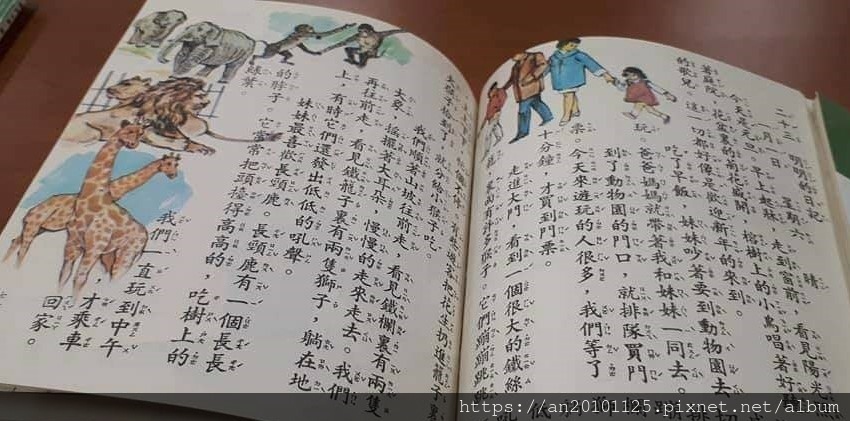 二十三 明明的日記
一月一日 星期六 晴
今天是元旦。早上起牀,走到窗前,看見陽光
著庭院,花盆裏的菊花盛開 榕樹上的小鳥唱著好
的歌兒 這一切都好像是歡迎新年的來到。
吃了早飯 妹妹吵著要到動物園去
玩。爸爸媽媽就帶著我和妹妹一同去。
到了動物園的門口,就排隊買門
票。今天來遊玩的人很多,我們等了
十分鐘,才買到門票。
走進大門,看到一個很大的鐵絲
裏面有許多猴子。它們蹦蹦跳跳
有些遊客把花生扔進籠子裏
就分給小猴子吃。
我們順著山坡往前走,看見鐵欄裏有兩隻
大象 搖擺著大耳朵,慢慢的走來走去。我們
再往前走,看見鐵籠子裏有兩隻獅子,躺在地
上,有時它們還發出低低的吼聲。
妹妹最喜歡長頸鹿。長頸鹿有一個長長
的脖子。它常常把頭擡得高高的,吃樹上的
綠葉。
我們一直玩到中午
,才乘車
回家。
https://an20101125.pixnet.net/album